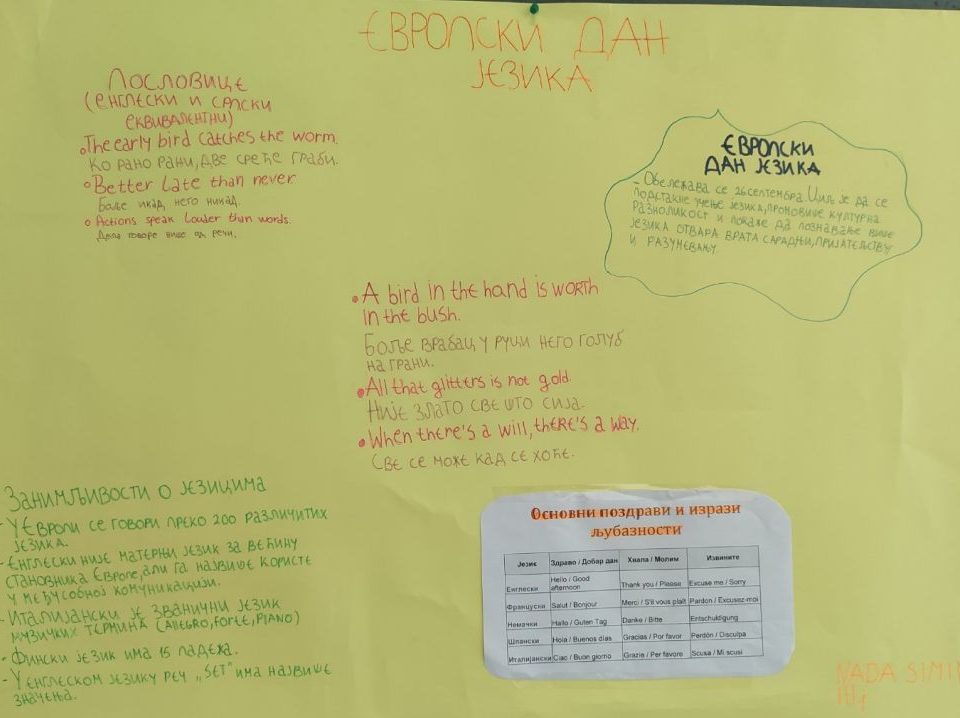 ЄВРОПСКИ ДАН
ЈЕЗИКА
Пословице
(енглески и српски
еквиваленти)
The early bird catches the worm.
Ко рано рани, две среће граби.
Better late than never
Боље икад, него никад.
Actions speak louder than words.
Дела говоре више од речи.
ЄВРОПСКИ
ДАН ЈЕЗИКА
- Обележава се 26 септембра. Циљ је да се
подстакне учење језика, промовише културна
разноликост и покаже да познавање више
језика отвара врата сарадњи, пријатељству
и разумевању.
A bird in the hand is worth
in the bush.
Боље врабац у руци него голуб
на грани.
All that glitters is not gold.
Није злато све што сија.
When there's a will, there's a way.
Све се може кад се хоће.
Занимљивости о језицима
- У Европи се говори преко 200 различитих
језика.
- Енглески није матерњи језик за већину
становника Европе, али га највише користе
у међусобној комуникацији.
- Италијански је званични језик
музичких термина (allegro, forte, piano)
- Фински језик има 15 падежа.
- У енглеском језику реч „SET" има највише
значења.
Основни поздрави и изрази
љубазности
Језик Здраво / Добар дан Хвала / Молим Извините
Енглески Hello / Good afternoon Thank you / Please Excuse me / Sorry
Француски Salut / Bonjour Merci / S'il vous plaît Pardon / Excusez-moi
Немачки Hallo / Guten Tag Danke / Bitte Entschuldigung
Шпански Hola / Buenos días Gracias / Por favor Perdón / Disculpa
Италијански Ciao / Buon giorno Grazie / Per favore Scusa / Mi scusi
NADA